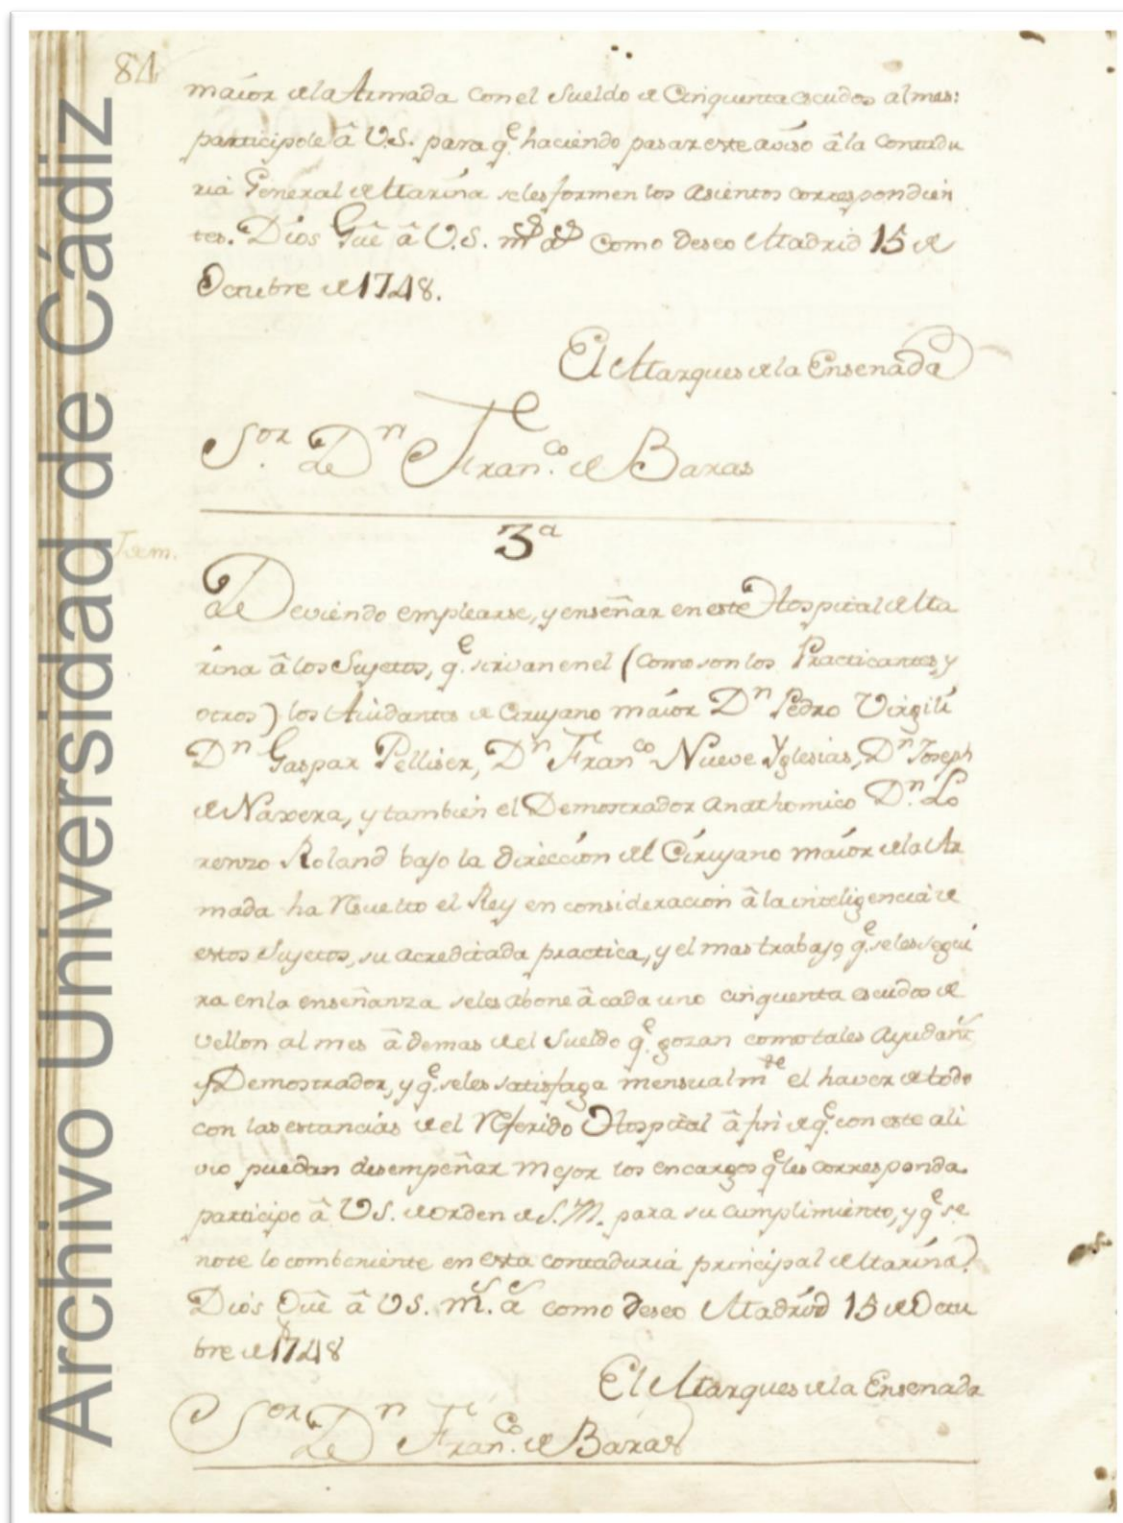 84
maíor de la Armada con el Sueldo de Cinquenta escudos al mes:
participole â V.S. para q.^e haciendo pasar este aviso â la Contadu
ria General de Marina se les formen los asientos correspondien
tes. Dios Gûe â V.S. m^s a^s como deseo Madrid 15 de
Octubre de 1748.
El Marques de la Ensenada
S.^or D^n Fran.^co de Baras
3^a
Idem.
Deviendo emplearse, y enseñar en este Hospital de Ma
rina â los Sujetos, q.^e sirvan en el (como son los Practicantes, y
otros) los Aiudantes de Cirujano maíor D^n Pedro Virgili
D^n Gaspar Pelliser, D^n Fran^co Nueve Yglesias, D^n Joseph
de Naxera, y tambien el Demostrador anathomico D.^n Lo
renzo Roland bajo la dirección del Cirujano maíor de la Ar
mada ha Rsuelto el Rey en consideracion â la inteligencia de
estos Sujetos, su acreditada practica, y el mas trabajo q.^e se les segui
ra en la enseñanza se les abone â cada uno cinquenta escudos de
vellon al mes â demas de el Sueldo q.^e gozan como tales Ayudant^s
y Demostrador, y q.^e se les satisfaga mensualm^te el haver de todo
con las estancias de el Rferido Hospital â fin de q.^e con este ali
vio puedan desempeñar mejor los encargos q^e les corresponda.
participo â V.S. de orden de S.M. para su cumplimiento, y q.^e se
note lo combeniente en esta contaduria principal de Marina.
Dios Gûe â V.S. m.^s a^s como deseo Madrid 15 de Octu
bre de 1748
El Marques de la Ensenada
S^or D^n Fran.^co de Baras
Archivo Universidad de Cádiz